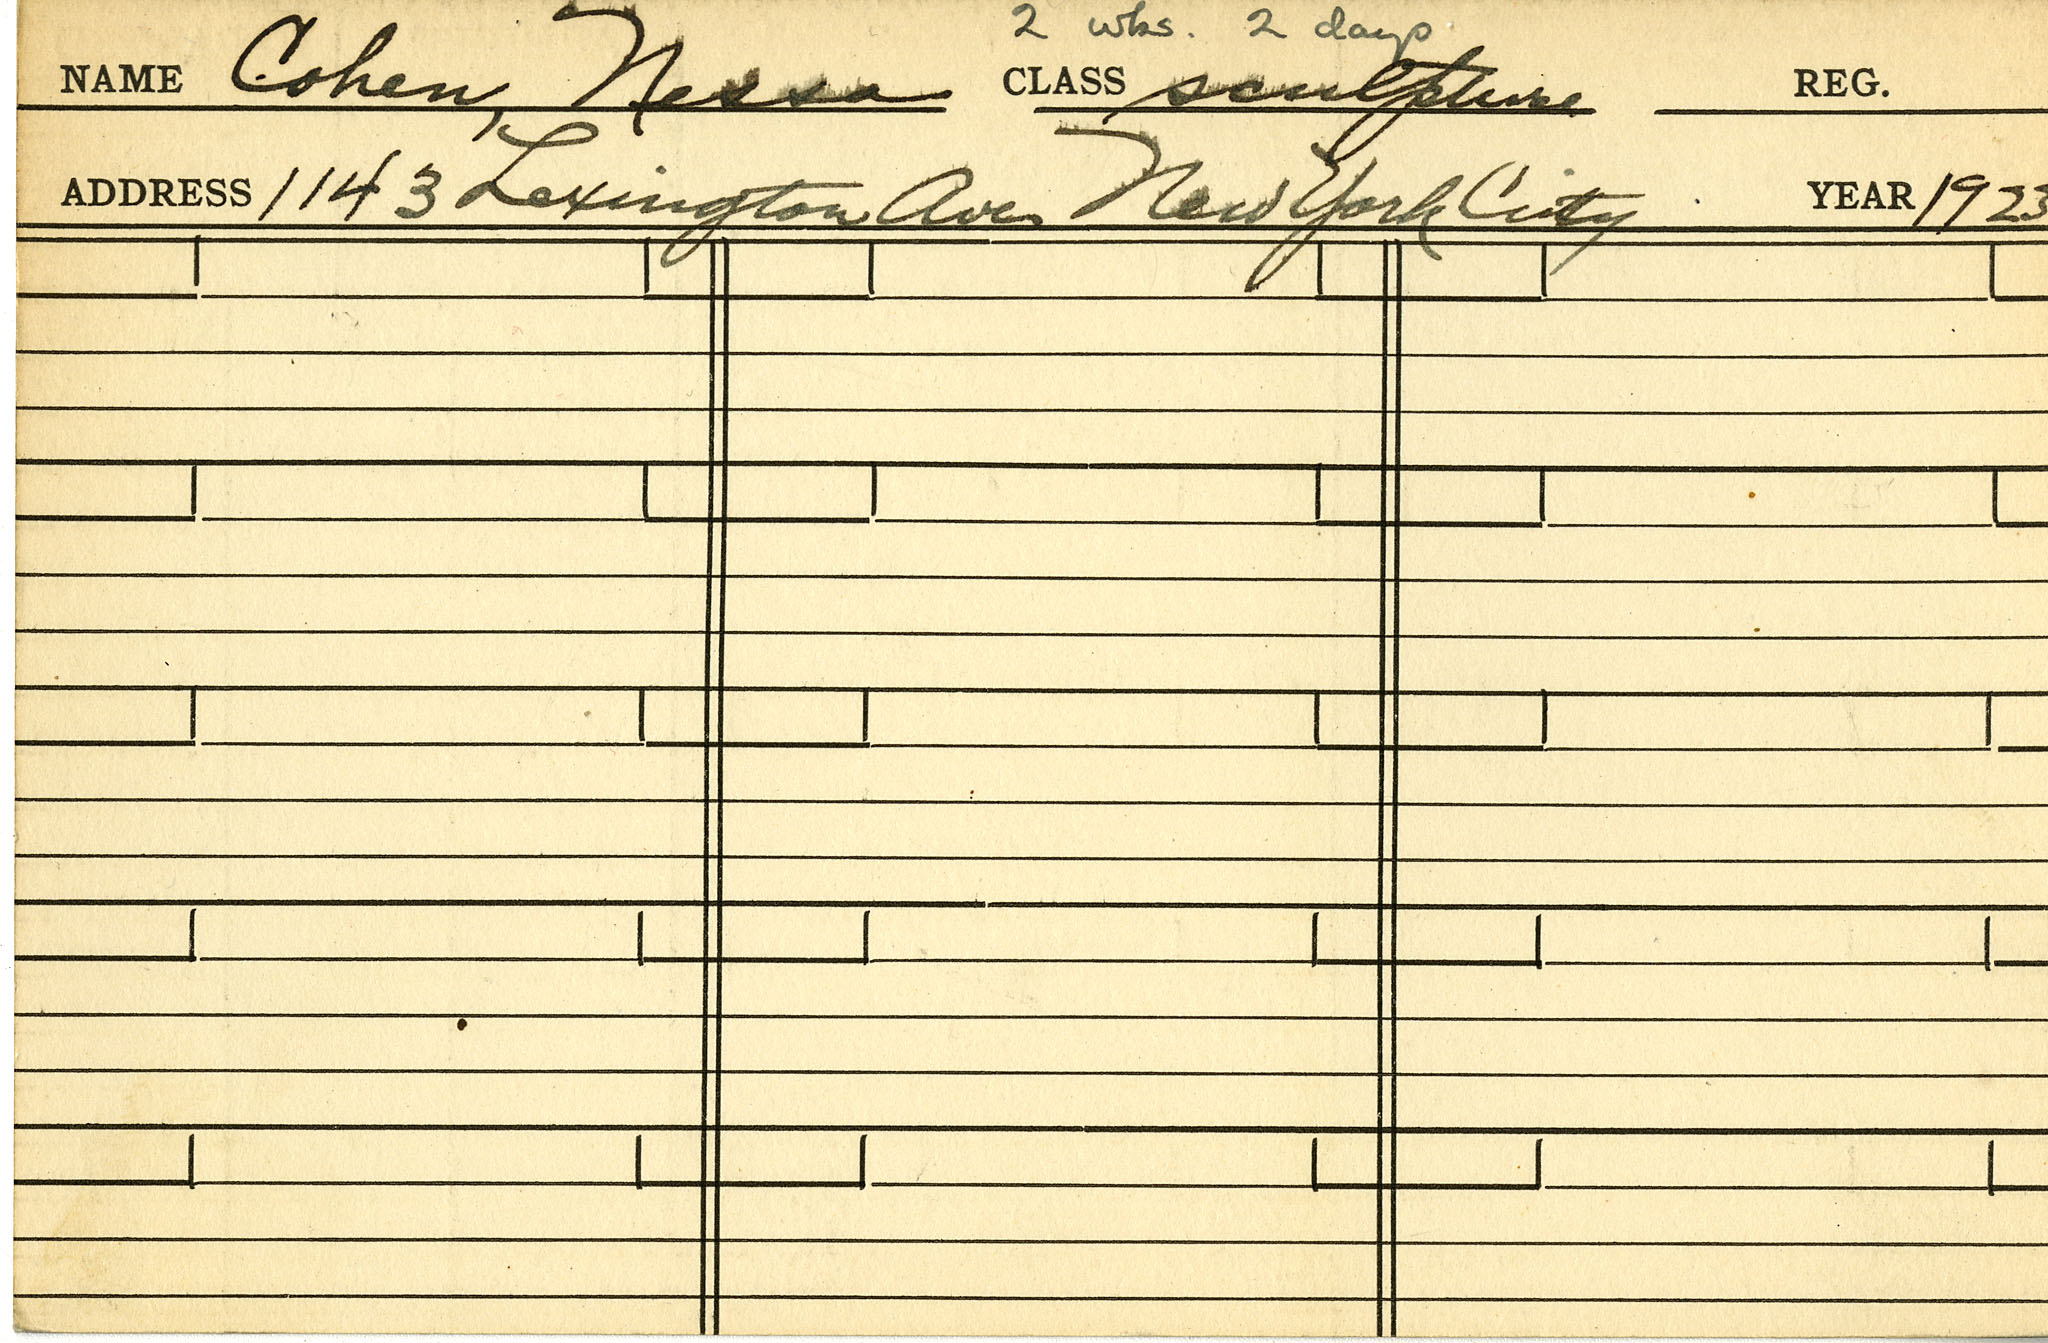 2 wks. 2 days
NAME Cohen, Nessa CLASS sculpture REG.
ADDRESS 1143 Lexington Ave New York City YEAR 1923